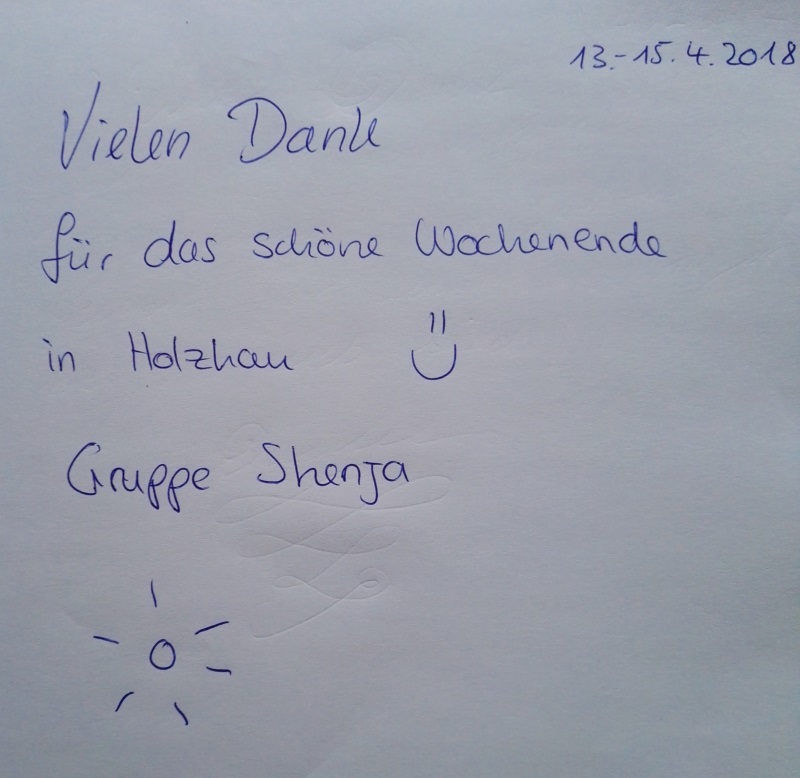 13.-15.4.2018
Vielen Dank
für das schöne Wochenende
in Holzhau
Gruppe Shenja